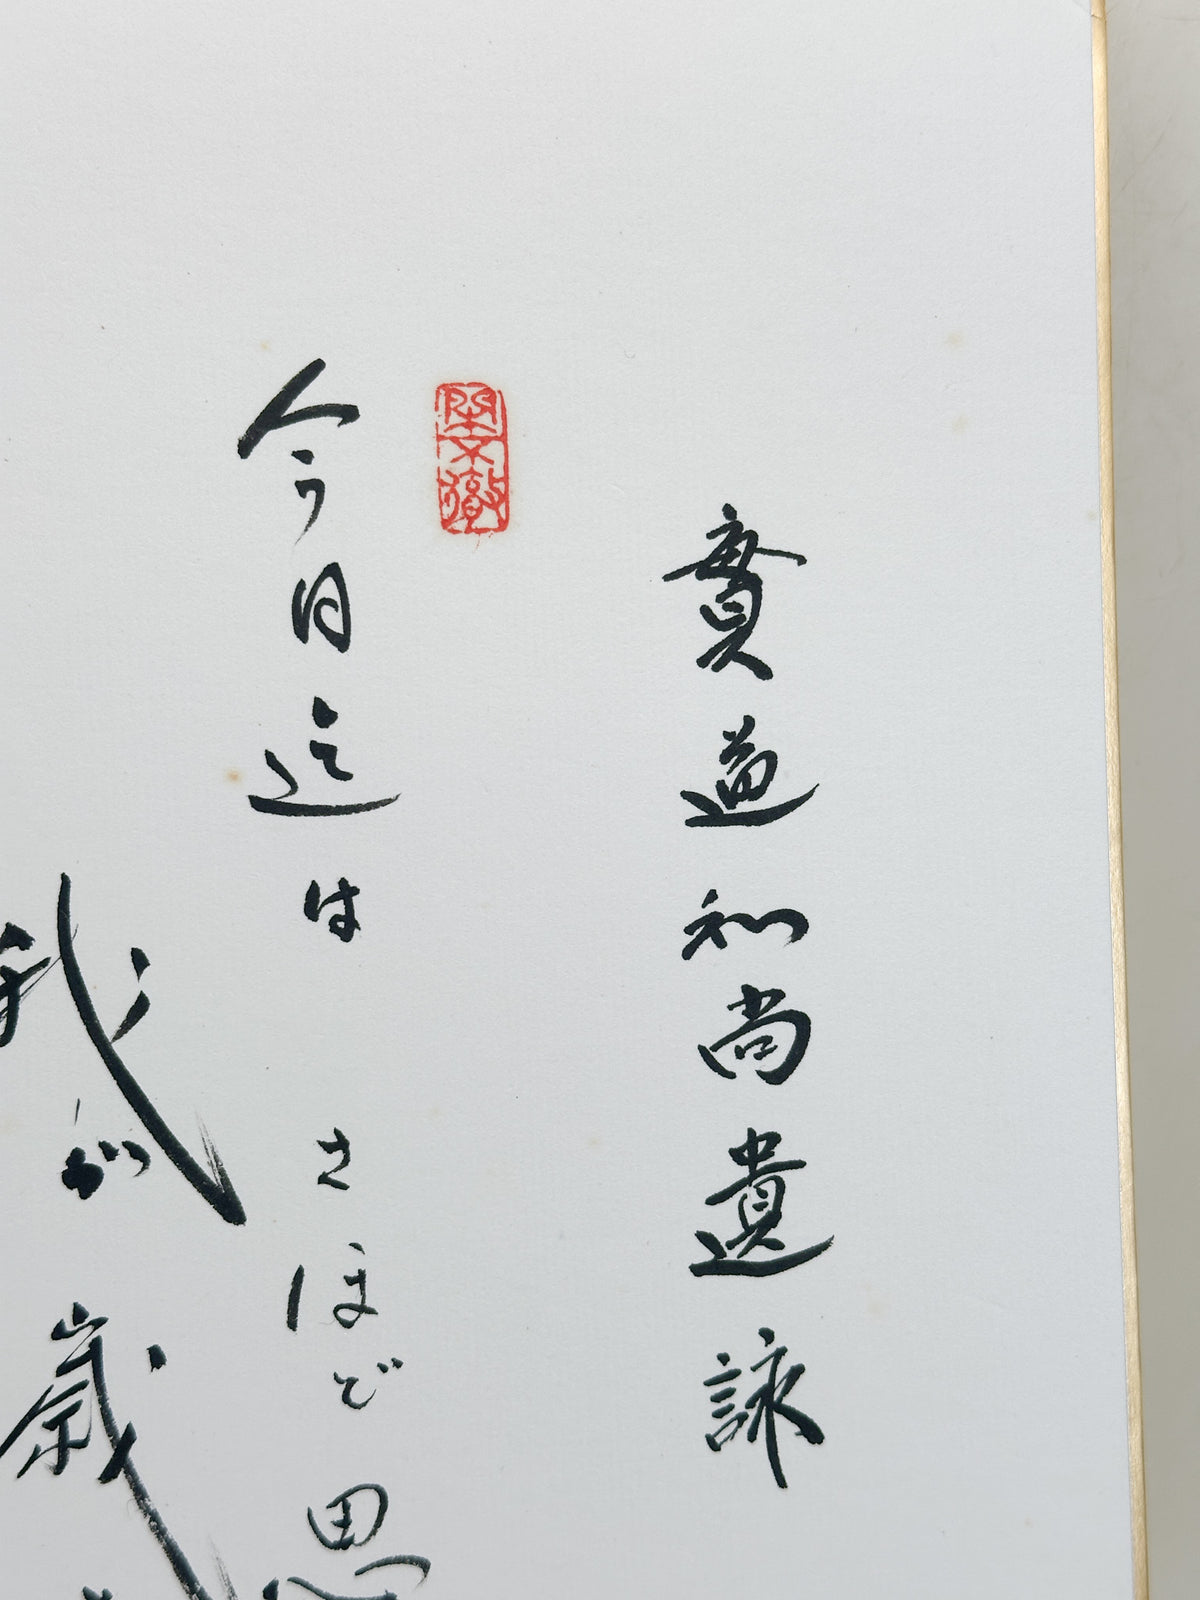 賡道和尚遺詠
閑不徹
今日迄は さほど思
我が歳